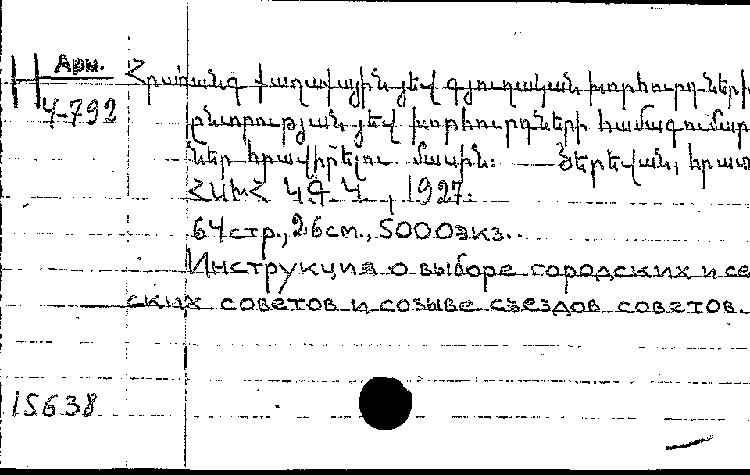 Н Арм.
4-792
Հրահանգ քաղաքային յեվ գյուղական խորհուրդների
ընտրության յեվ խորհուրդների համագումար
ներ հրավիրելու մասին: Յերեվան, հրատ
ՀՍԽՀ ԿԳԿ, 1927.
64 стр., 26 см., 5000 экз..
Инструкция о выборе городских и се
ских советов и созыве съездов советов.
15638